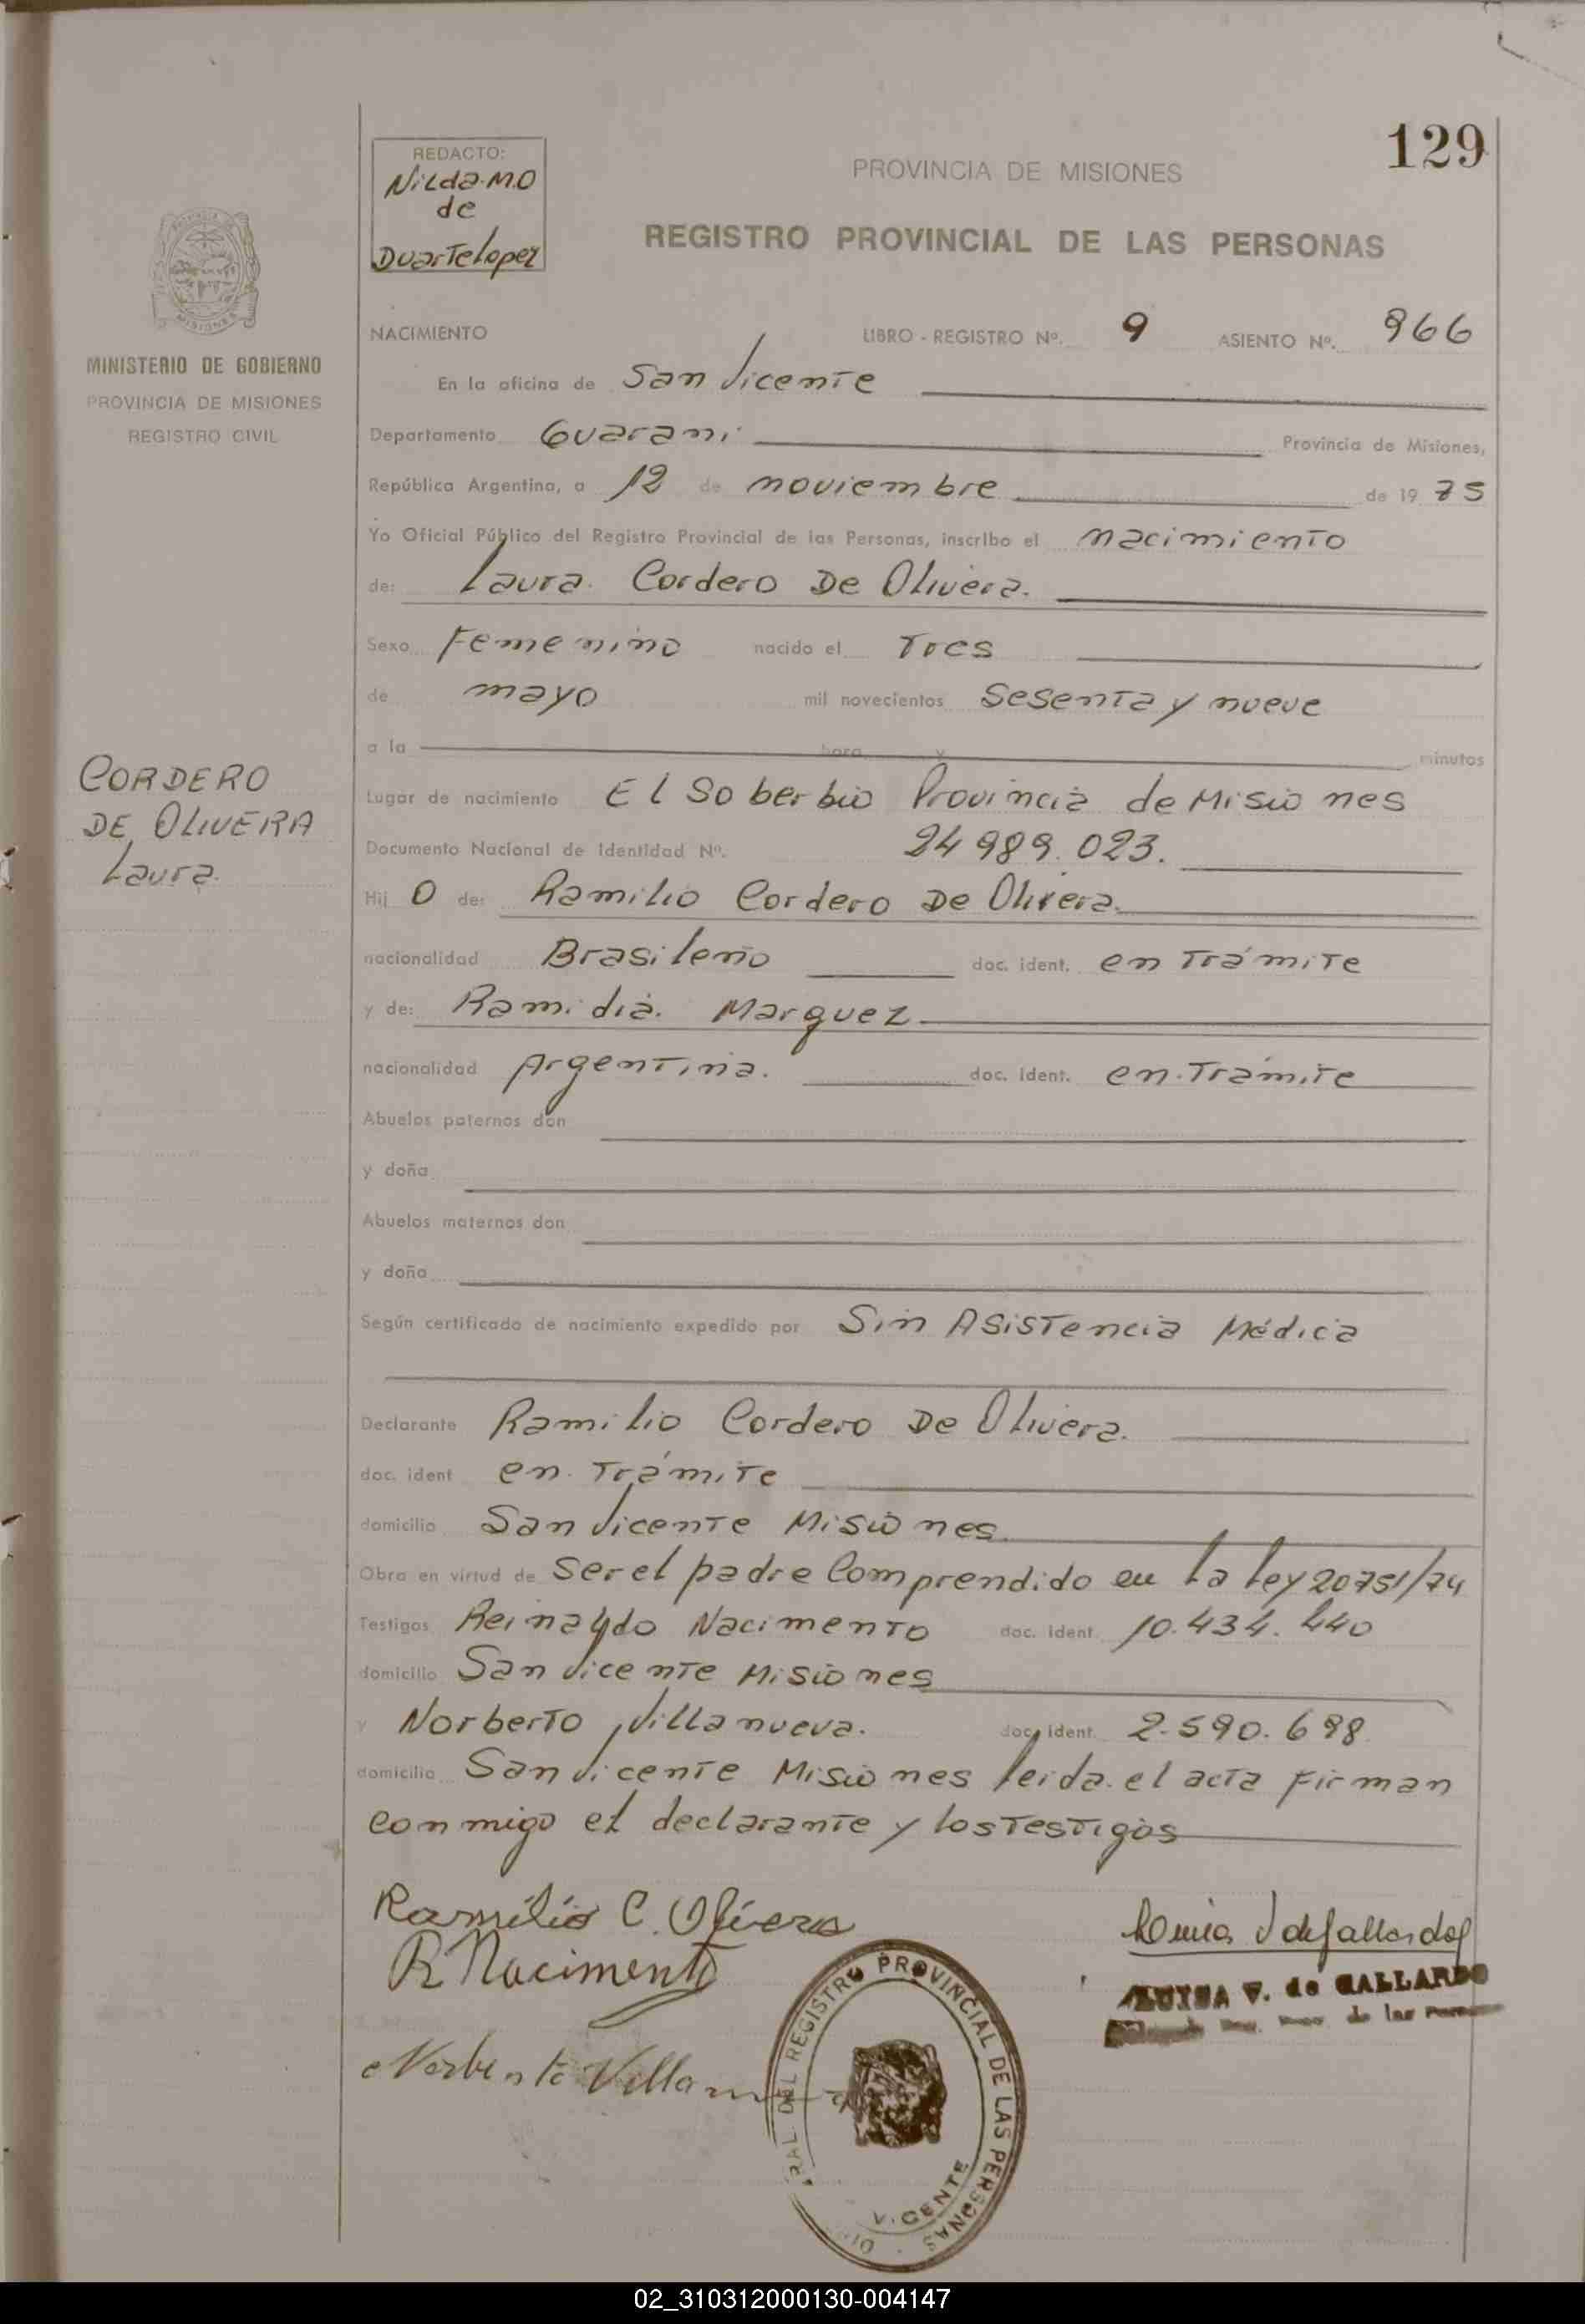 129
REDACTO:
Nilda.M.O
de
Duarte Lopez
PROVINCIA DE MISIONES
REGISTRO PROVINCIAL DE LAS PERSONAS
MISIONES
MINISTERIO DE GOBIERNO
PROVINCIA DE MISIONES
REGISTRO CIVIL
NACIMIENTO LIBRO - REGISTRO Nº. 9 ASIENTO Nº. 966
En la oficina de San Vicente
Departamento Guarani Provincia de Misiones,
República Argentina, a 12 de noviembre de 19 75
Yo Oficial Público del Registro Provincial de las Personas, inscribo el nacimiento
de: Laura Cordero De Olivera.
Sexo Femenino nacido el Tres
de mayo mil novecientos Sesenta y nueve
a la hora y minutos
CORDERO
DE OLIVERA
Laura
Lugar de nacimiento El Soberbio Provincia de Misiones
Documento Nacional de Identidad Nº. 24 989. 023.
Hij O de: Ramilio Cordero De Olivera
nacionalidad Brasileño doc. ident. en Trámite
y de: Ramidia Marquez
nacionalidad Argentina. doc. ident. en Trámite
Abuelos paternos don
y doña
Abuelos maternos don
y doña
Según certificado de nacimiento expedido por Sin Asistencia Médica
Declarante Ramilio Cordero De Olivera.
doc. ident en Trámite
domicilio San Vicente Misiones
Obra en virtud de Ser el padre Comprendido en la Ley 20751/74
Testigos Reinaldo Nacimento doc. ident. 10.434.440
domicilio San Vicente Misiones
y Norberto Villanueva. doc. ident. 2.590.698
domicilio San Vicente Misiones leida el acta firman
conmigo el declarante y los Testigos
Ramilio C. Olivera
R Nacimento
Norberto Villanueva
Luisa V de Gallardo
LUISA V. de GALLARDO
de las
RAL DEL REGISTRO PROVINCIAL DE LAS PERSONAS
V. CENTE
02_310312000130-004147